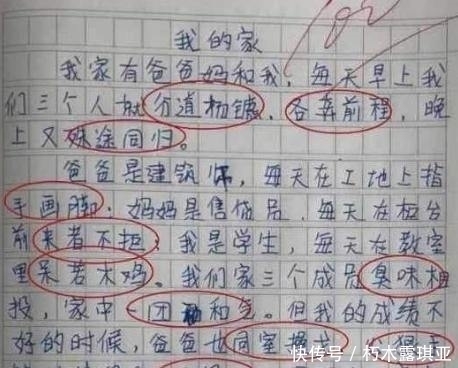 我的家
我家有爸爸妈和我,每天早上我
们三个人就分道杨镳、各奔前程,晚
上又殊途同归。
爸爸是建筑师,每天在工地上指
手画脚;妈妈是售货员,每天在柜台
前来者不拒;我是学生,每天在教室
里呆若木鸡。我们家三个成员臭味相
投,家中一团和气。但我的成绩不
好的时候,爸爸也同室操
快传号 / 朽木露琪亚